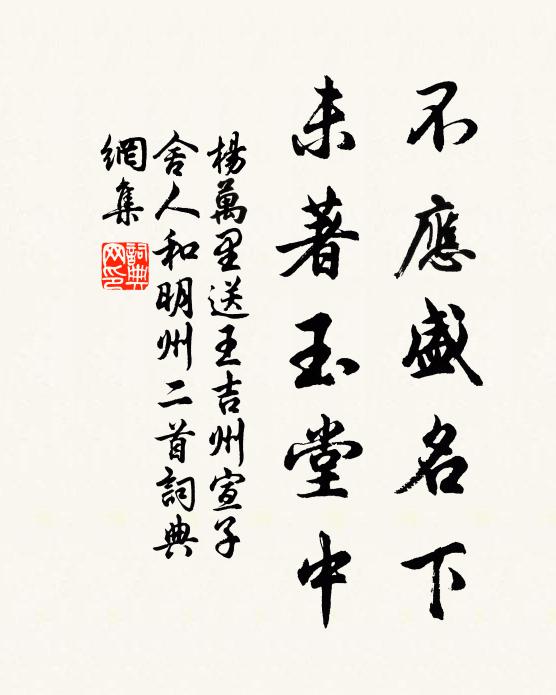 不應盛名下
未著玉堂中
楊萬里送王吉州宣子
舍人和明州二首詞典
網集
詞典网印